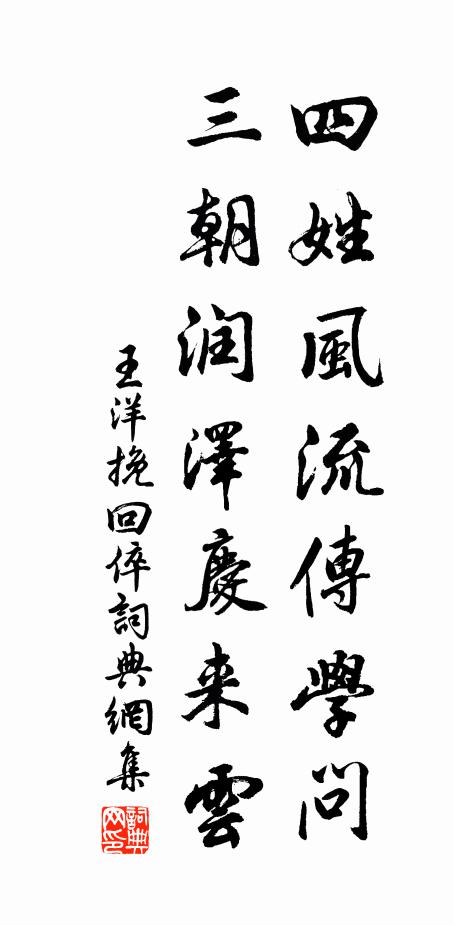 四姓風流傳學問
三朝润澤慶来雲
王洋挽回倅詞典網集
詞典网印